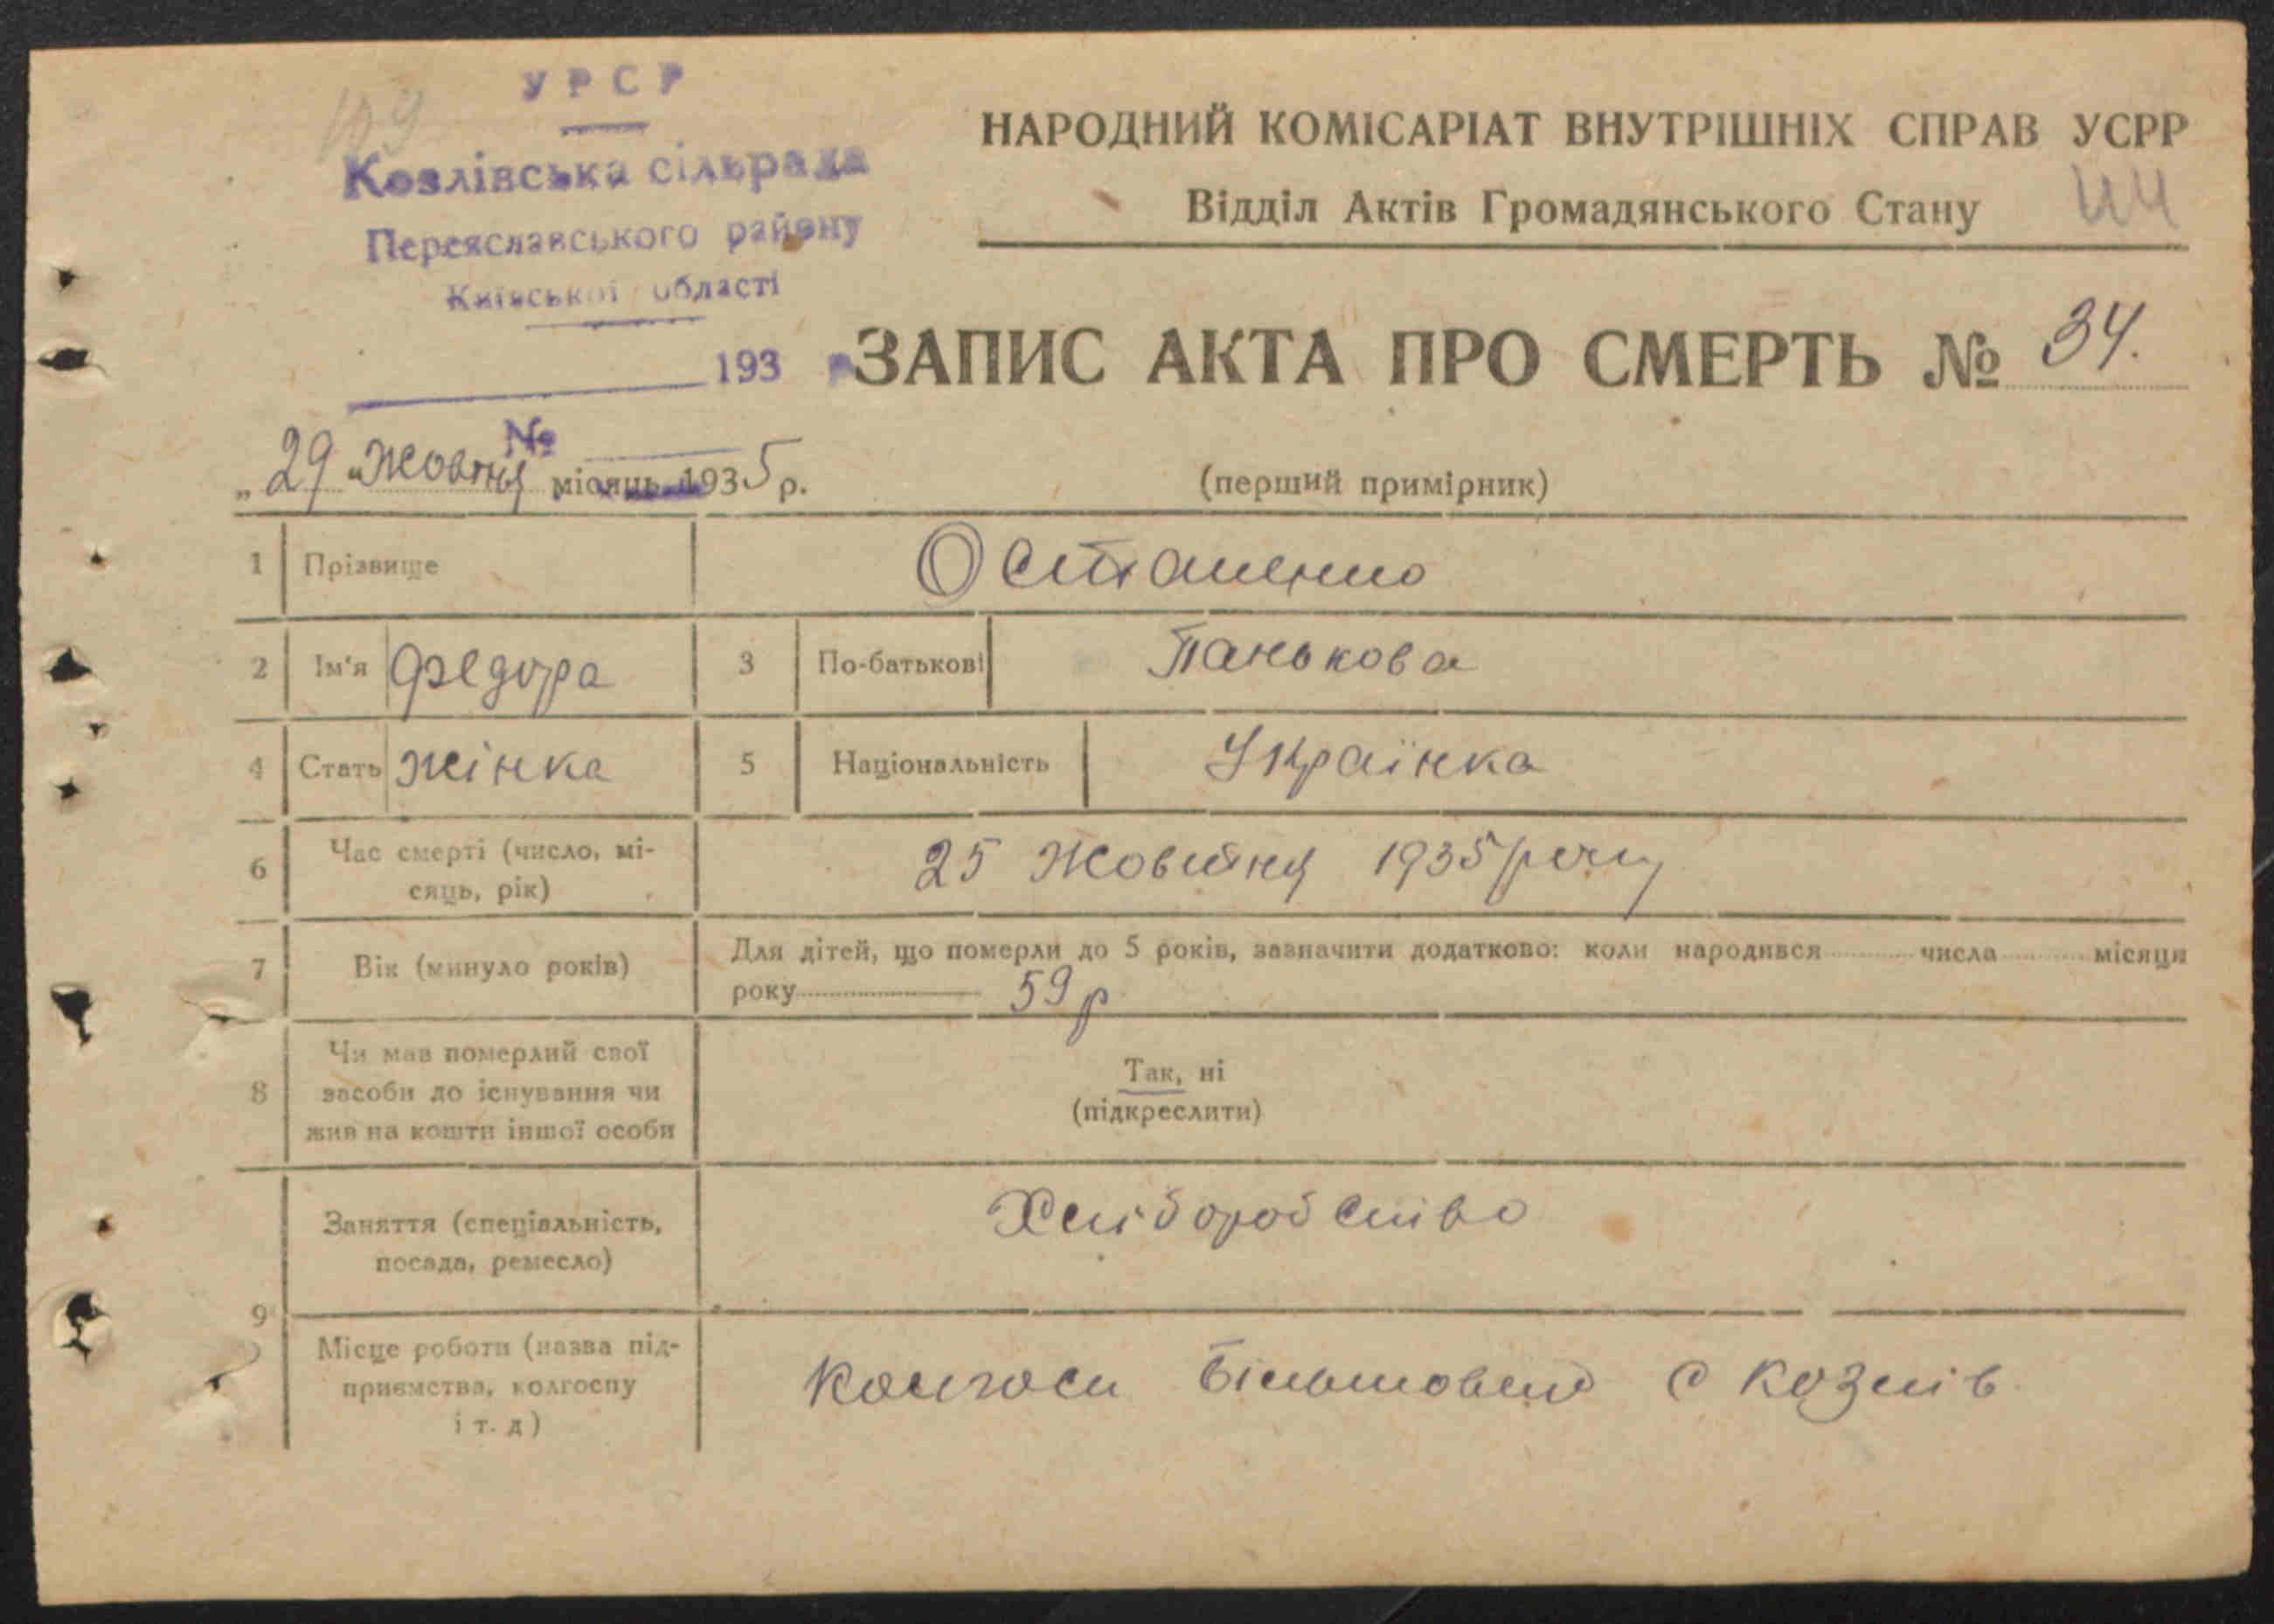 109
УРСР
Козлівська сільрада
Переяславського району
Київської області
193 р
№
НАРОДНИЙ КОМІСАРІАТ ВНУТРІШНІХ СПРАВ УСРР
Відділ Актів Громадянського Стану 44
ЗАПИС АКТА ПРО СМЕРТЬ № 34.
„29" Жовтня місяць 1935 р.
(перший примірник)
1 Прізвище Осташенко
2 Ім'я Федора 3 По-батькові Панькова
4 Стать жінка 5 Національність Українка
6 Час смерті (число, мі-
сяць, рік) 25 Жовтня 1935 року
7 Вік (минуло років) Для дітей, що померли до 5 років, зазначити додатково: коли народився числа місяця
року 59 р
8 Чи мав померлий свої
засоби до існування чи
жив на кошти іншої особи
Так, ні
(підкреслити)
9 Заняття (спеціальність,
посада, ремесло) Хліборобство
Місце роботи (назва під-
приємства, колгоспу
і т. д) Колгосп Більшовик с Козлів